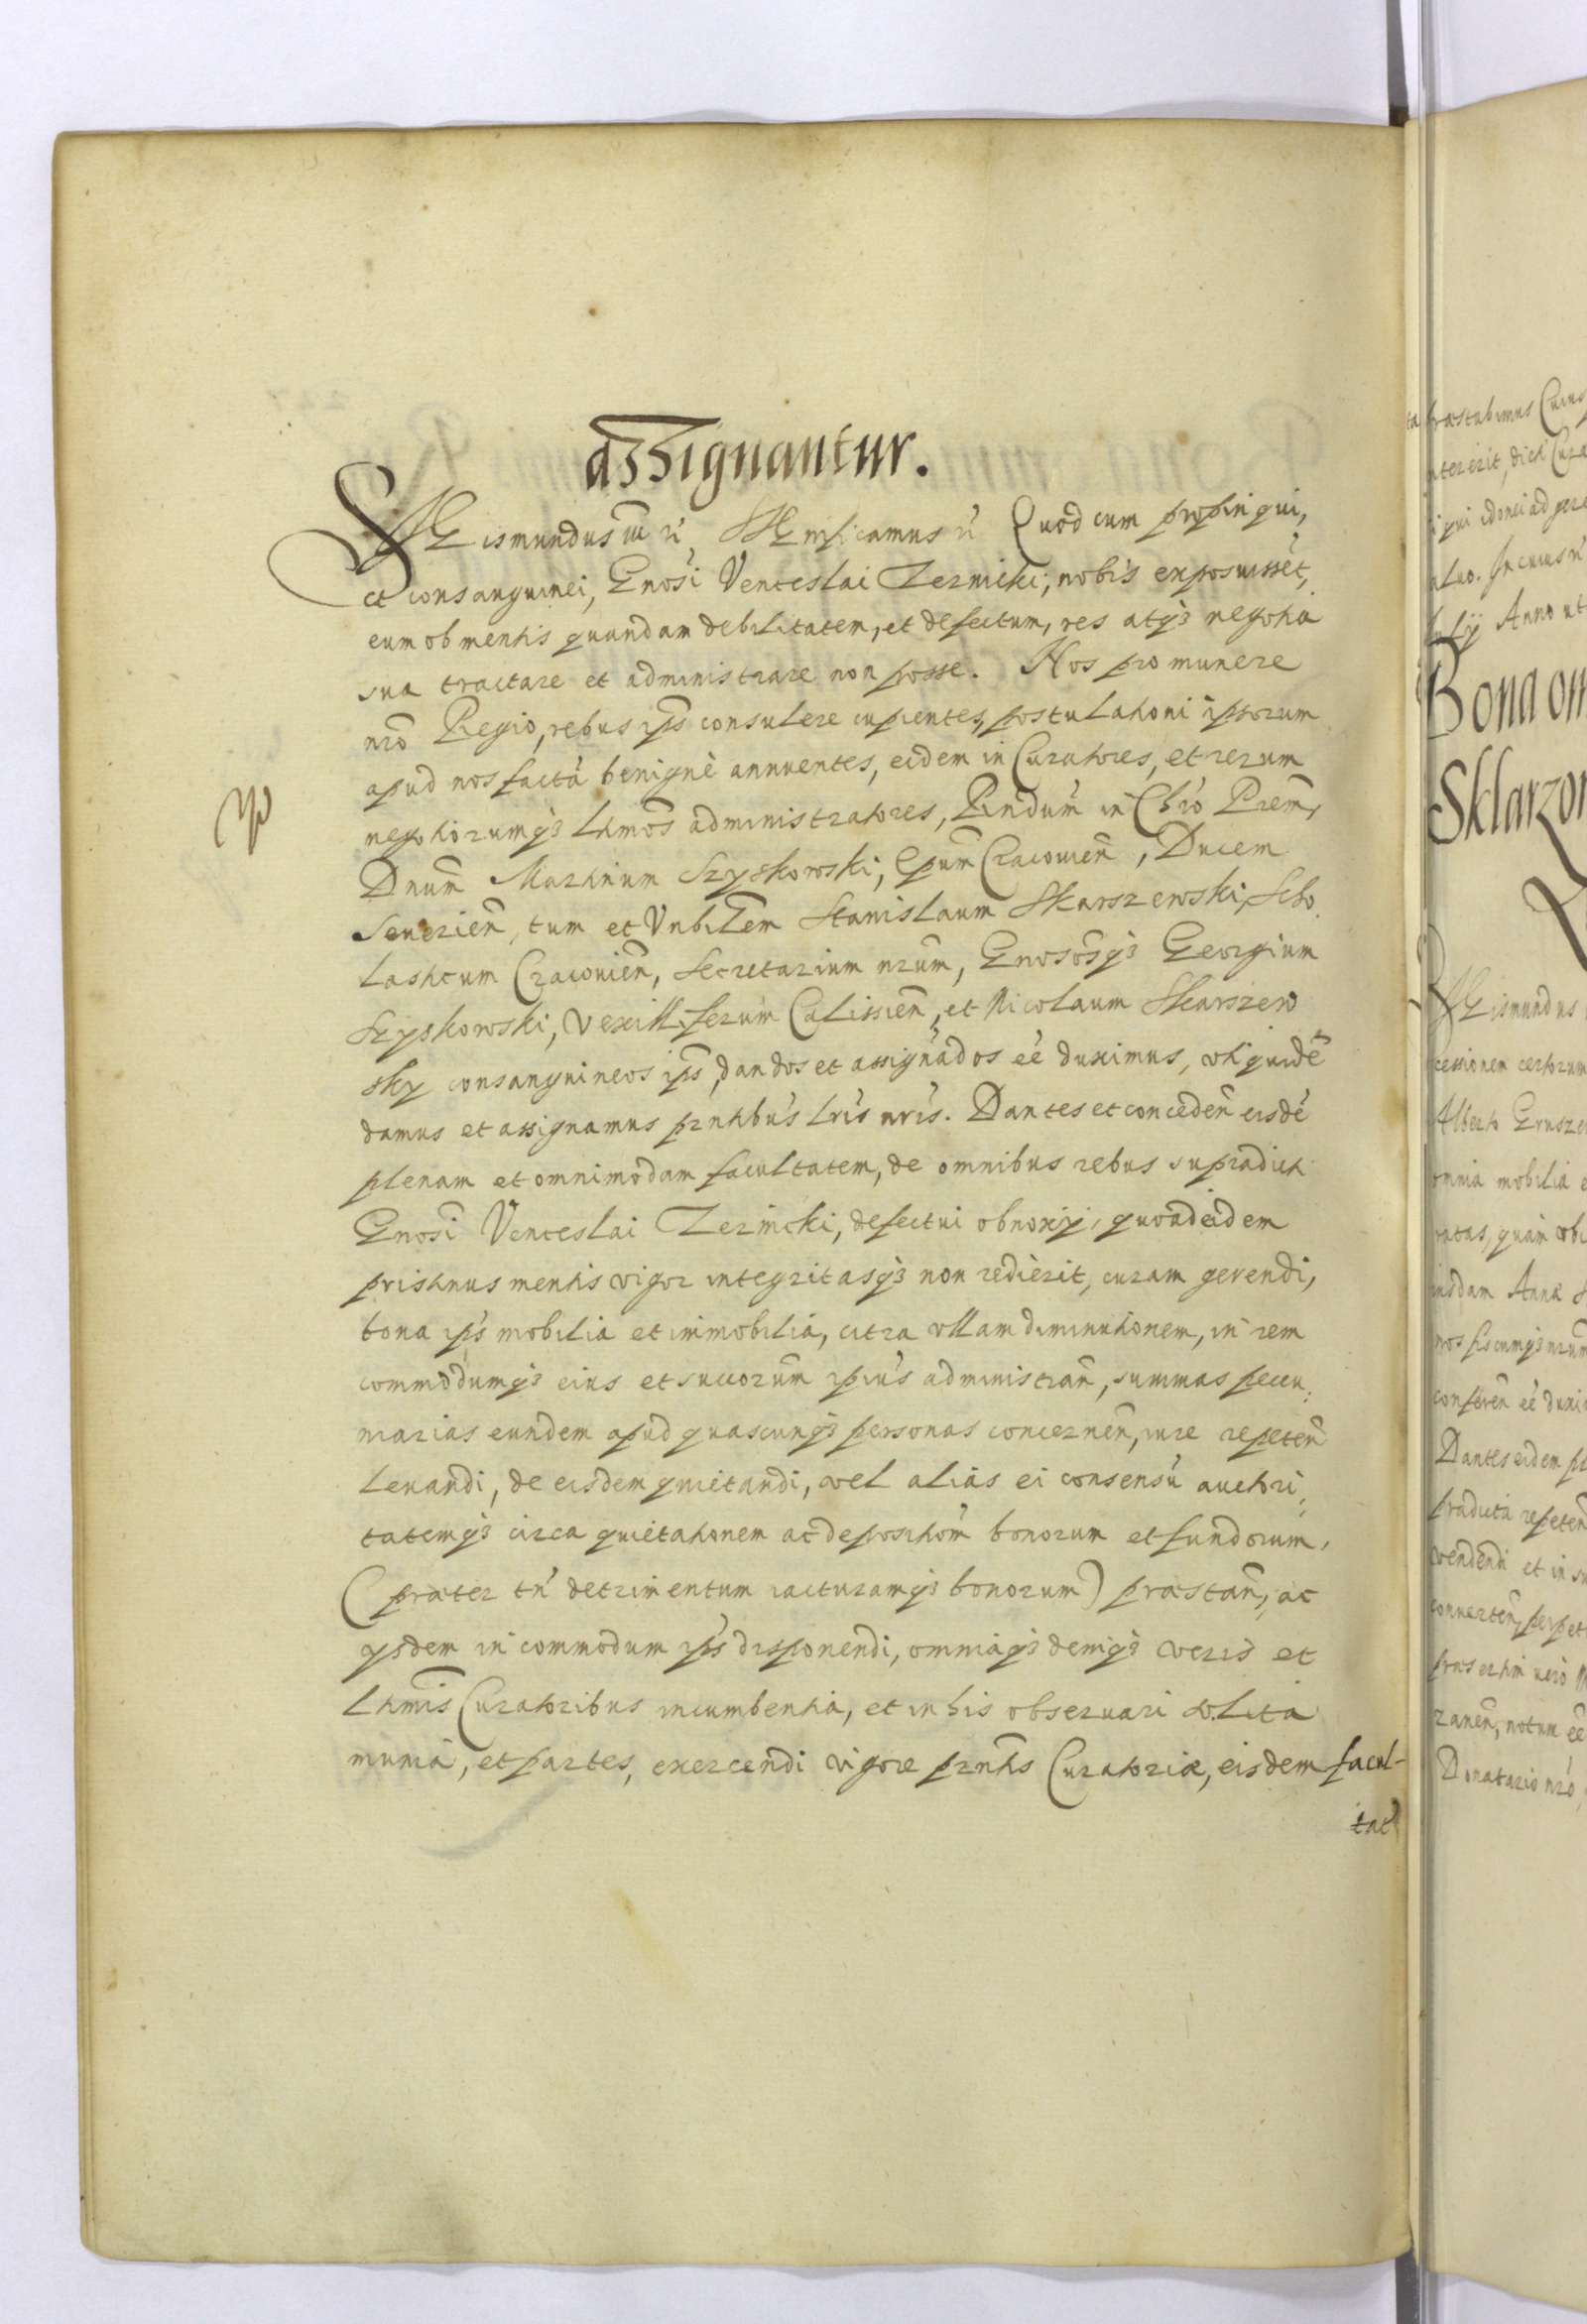 assignantur.
Sigismundus III etc. Significamus etc. Quod cum propinqui,
et consanguinei, Gnosi Venceslai Zernicki, nobis exposuissēt,
eum ob mentis quandam debilitatem, et defectum, res atq3 negotia
sua tractare et administrare non posse. Nos pro munere
nrō Regio, rebus ips consulere cupientes, postulationi ipsorum
apud nos factà benignè annuentes, eidem in Curatores, et rerum
negotiorumq3 Ltimōs administratores, Rndum in Chrō Prem,
Dnum Martinum Szyskowski, Epum Cracouien, Ducem
Seuerien, tum et Vnbilem Stanislaum Skarszewski, Scho
lasticum Cracouien, Secretarium nrum, Gnososq3 Georgium
Szyskowski, Vexilliferum Calissien, et Nicolaum Skarszew
sky consanguineos ips, dandos et assignados eē duximus, vti quidē
damus et assignamus prntibus lris nris. Dantes et conceden eisdē
plenam et omnimodam facultatem, de omnibus rebus supradicti
Gnosi Venceslai Zernicki, defectui obnoxij, quoad eidem
pristinus mentis vigor integritasq3 non redierit, curam gerendi,
bona ips mobilia et immobilia, citra vllam diminutionem, in rem
commodumq3 eius et succorum ipius administran, summas pecu,
niarias eundem apud quascunq3 personas concernen, iure repeten
leuandi, de eisdem quietandi, vel alias ei consensū auctori,
tatemq3 circa quietationem ac depositiom bonorum et fundorum,
(præter tn detrimentum iacturamq3 bonorum) præstan, ac
ysdem in commodum ips disponendi, omniaq3 deniq3 veris et
Ltimis Curatoribus incumbentia, et in his obseruari solita
munia, et partes, exercendi vigore prntis Curatoriæ, eisdem facul-
tat
Bona om
Sklarzo
Sigismundus
cessionem certorum
omnia mobilia e
Dantes eidem
vendendi et in su
Donatario nro,